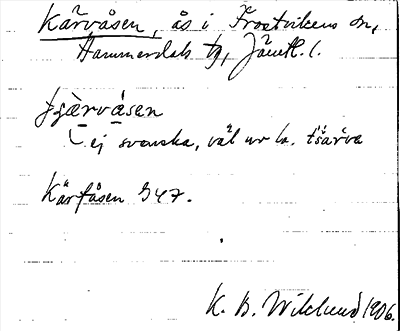 Kärvåsen, ås i Frostvikens sn,
Hammerdals tg, Jämtl. l.
ej svenska, väl ur la.
Kärfåsen G47.
K. B. Wiklund 1906.